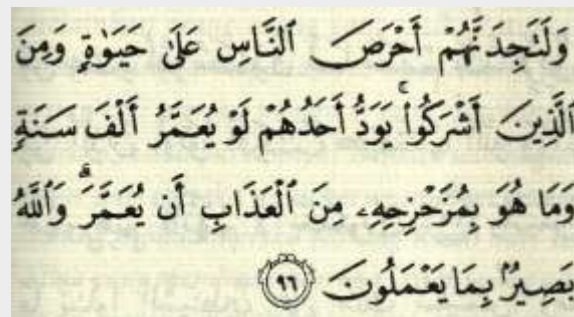 وَلَتَجِدَنَّهُمْ أَحْرَصَ ٱلنَّاسِ عَلَىٰ حَيَوٰةٍ وَمِنَ
ٱلَّذِينَ أَشْرَكُوا۟ ۚ يَوَدُّ أَحَدُهُمْ لَوْ يُعَمَّرُ أَلْفَ سَنَةٍ
وَمَا هُوَ بِمُزَحْزِحِهِۦ مِنَ ٱلْعَذَابِ أَن يُعَمَّرَ ۗ وَٱللَّهُ
بَصِيرٌۢ بِمَا يَعْمَلُونَ ٩٦